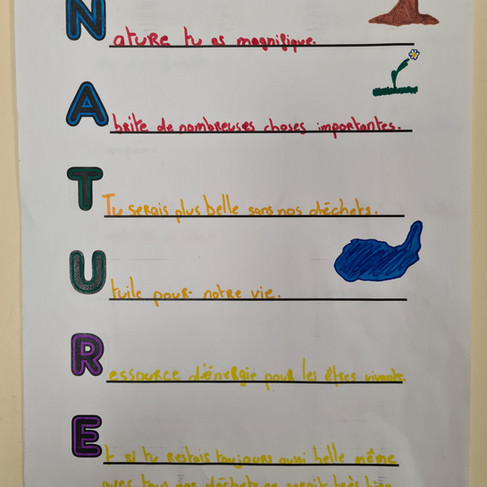 Nature tu es magnifique.
Abrite de nombreuses choses importantes.
Tu serais plus belle sans nos déchets.
Utuile pour notre vie.
Ressource d'énergie pour les êtres vivants.
Et si tu restais toujours aussi belle même
avec tous nos déchets ce serait très bien